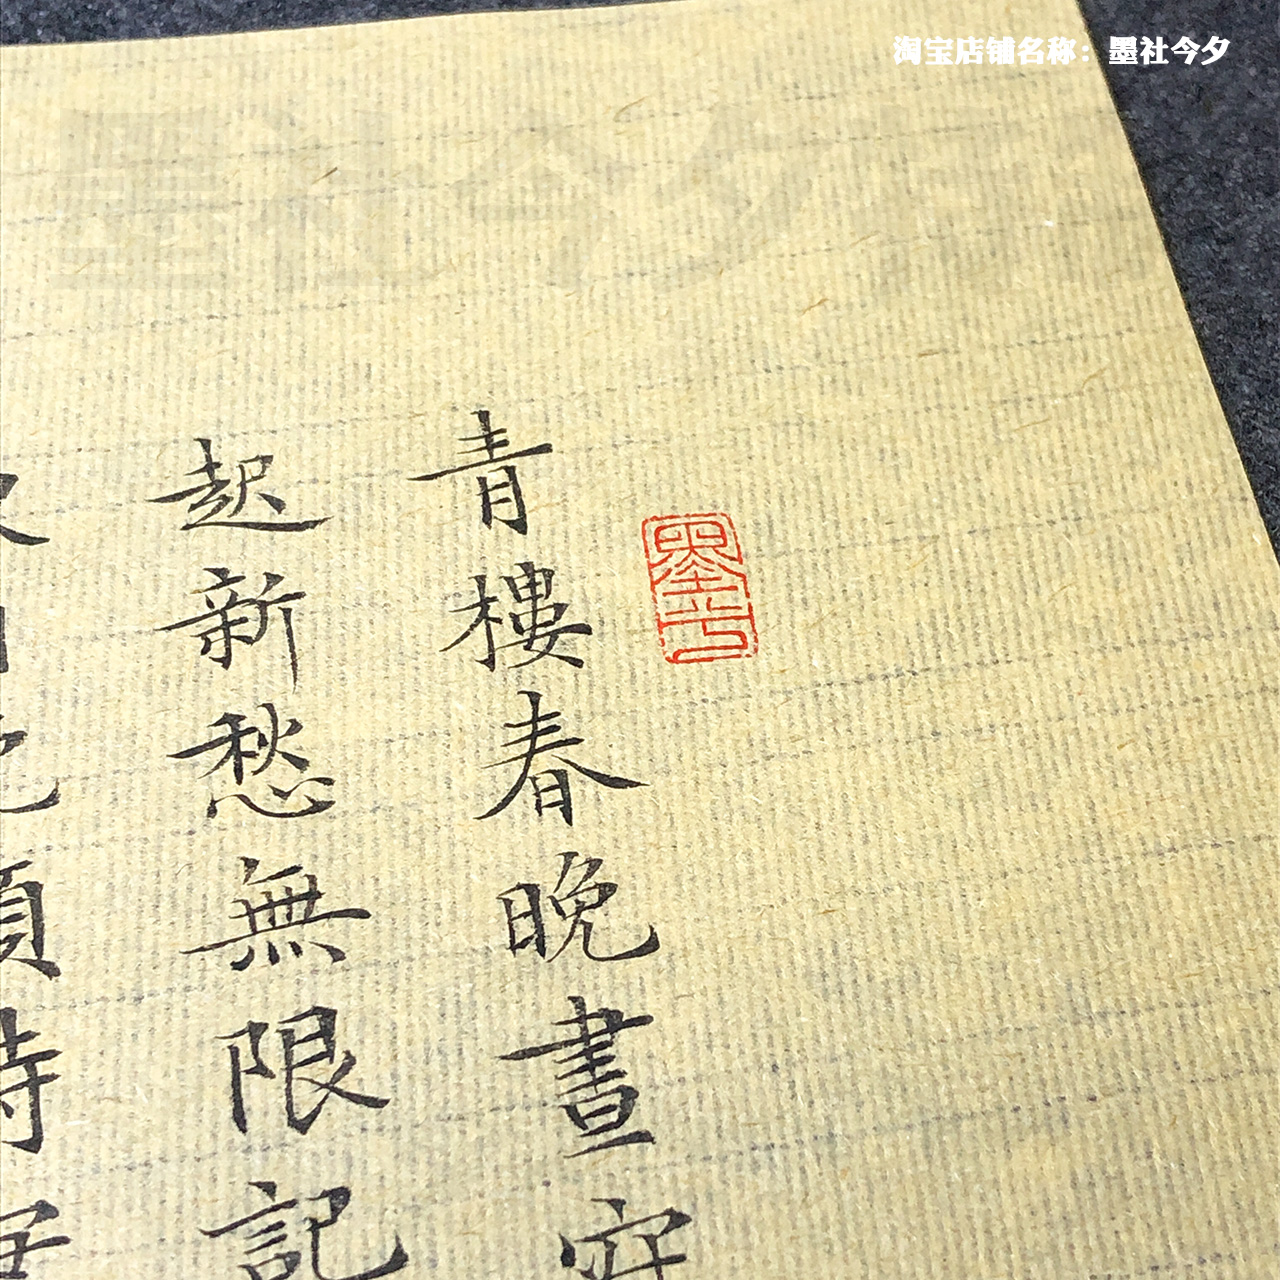 淘宝店铺名称：墨社今夕
墨社今夕
青樓春晚晝寂
起新愁無限記